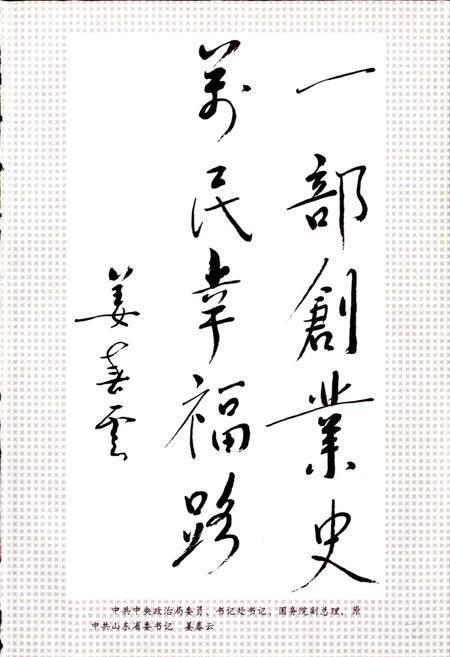 一部創業史
萬民幸福路
姜春雲
中共中央政治局委员、书记处书记、国务院副总理，原
中共山东省委书记　姜春云